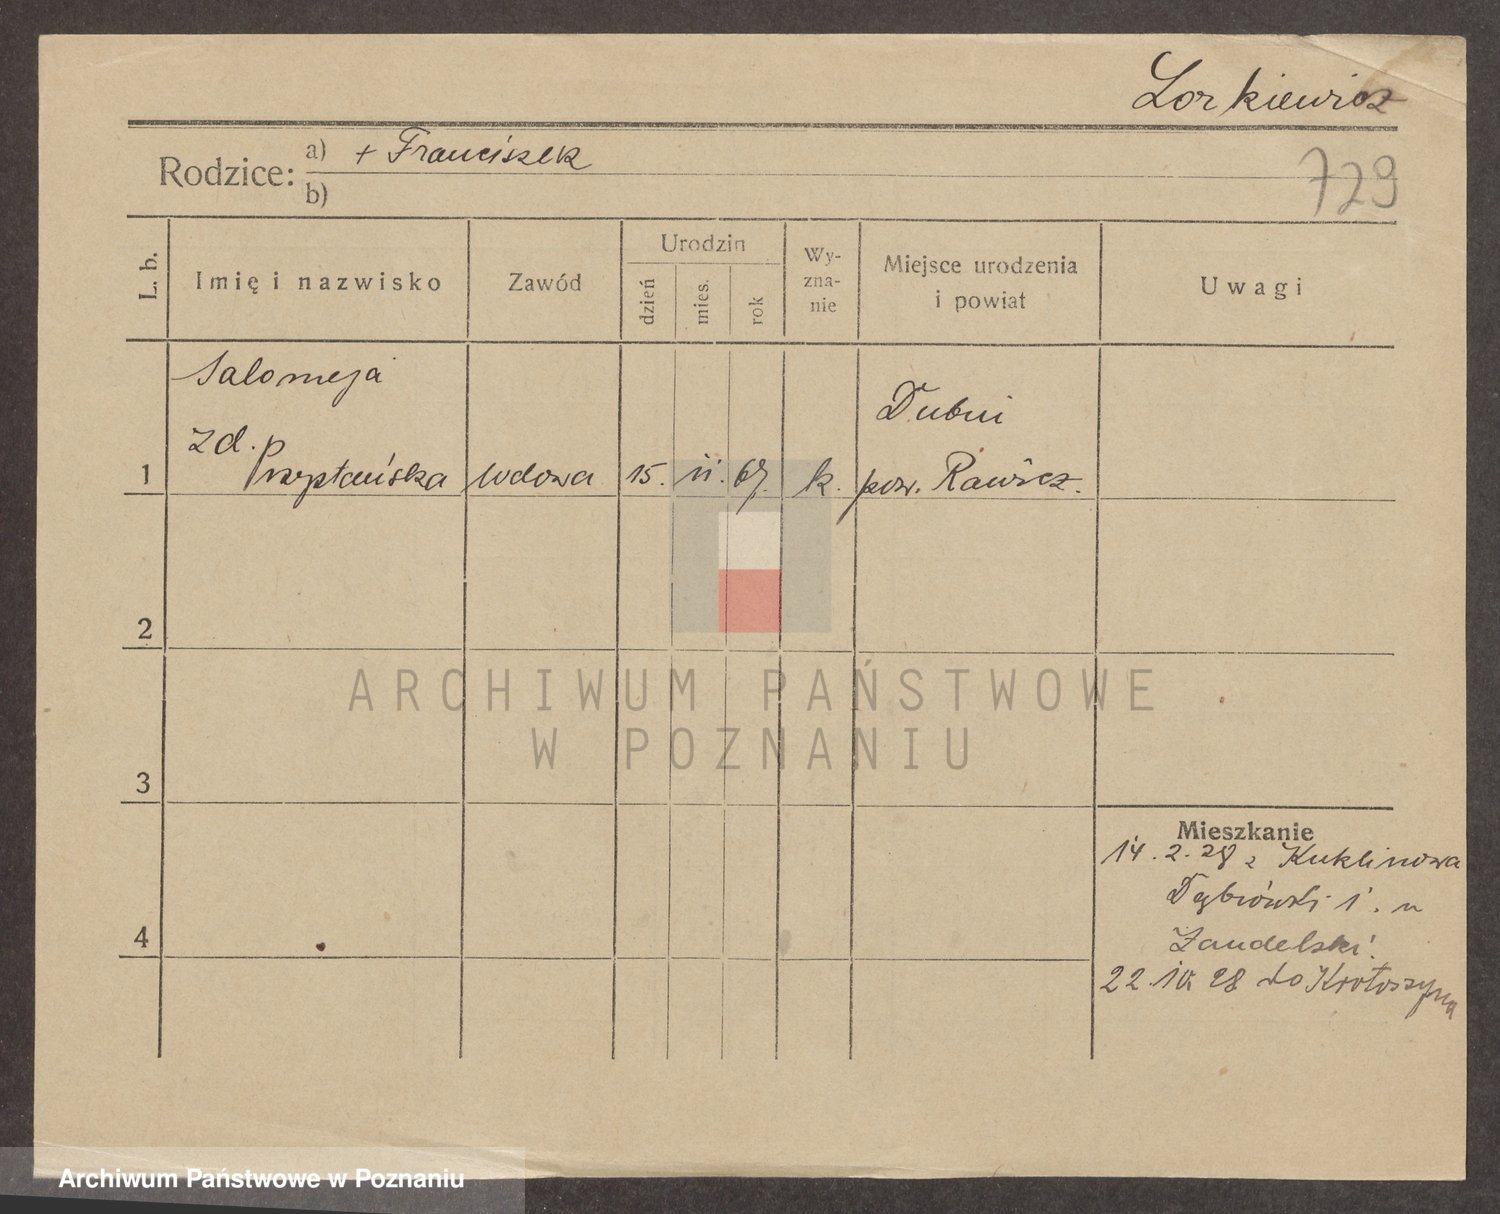 Lorkiewicz
Rodzice:
a) + Franciszek
b)
729
L. b.
Imię i nazwisko
Zawód
Urodzin
dzień
mies.
rok
Wy-
zna-
nie
Miejsce urodzenia
i powiat
Uwagi
Salomeja
zd.
1 Przeptańska wdowa 15. ii. 67. k. pow. Rawicz.
Dubni
2
3
4
ARCHIWUM PAŃSTWOWE
W POZNANIU
Mieszkanie
14. 2. 28 z Kuklinowa
1. u
Zandelski
22. 10. 28 do Krotoszyna
Archiwum Państwowe w Poznaniu